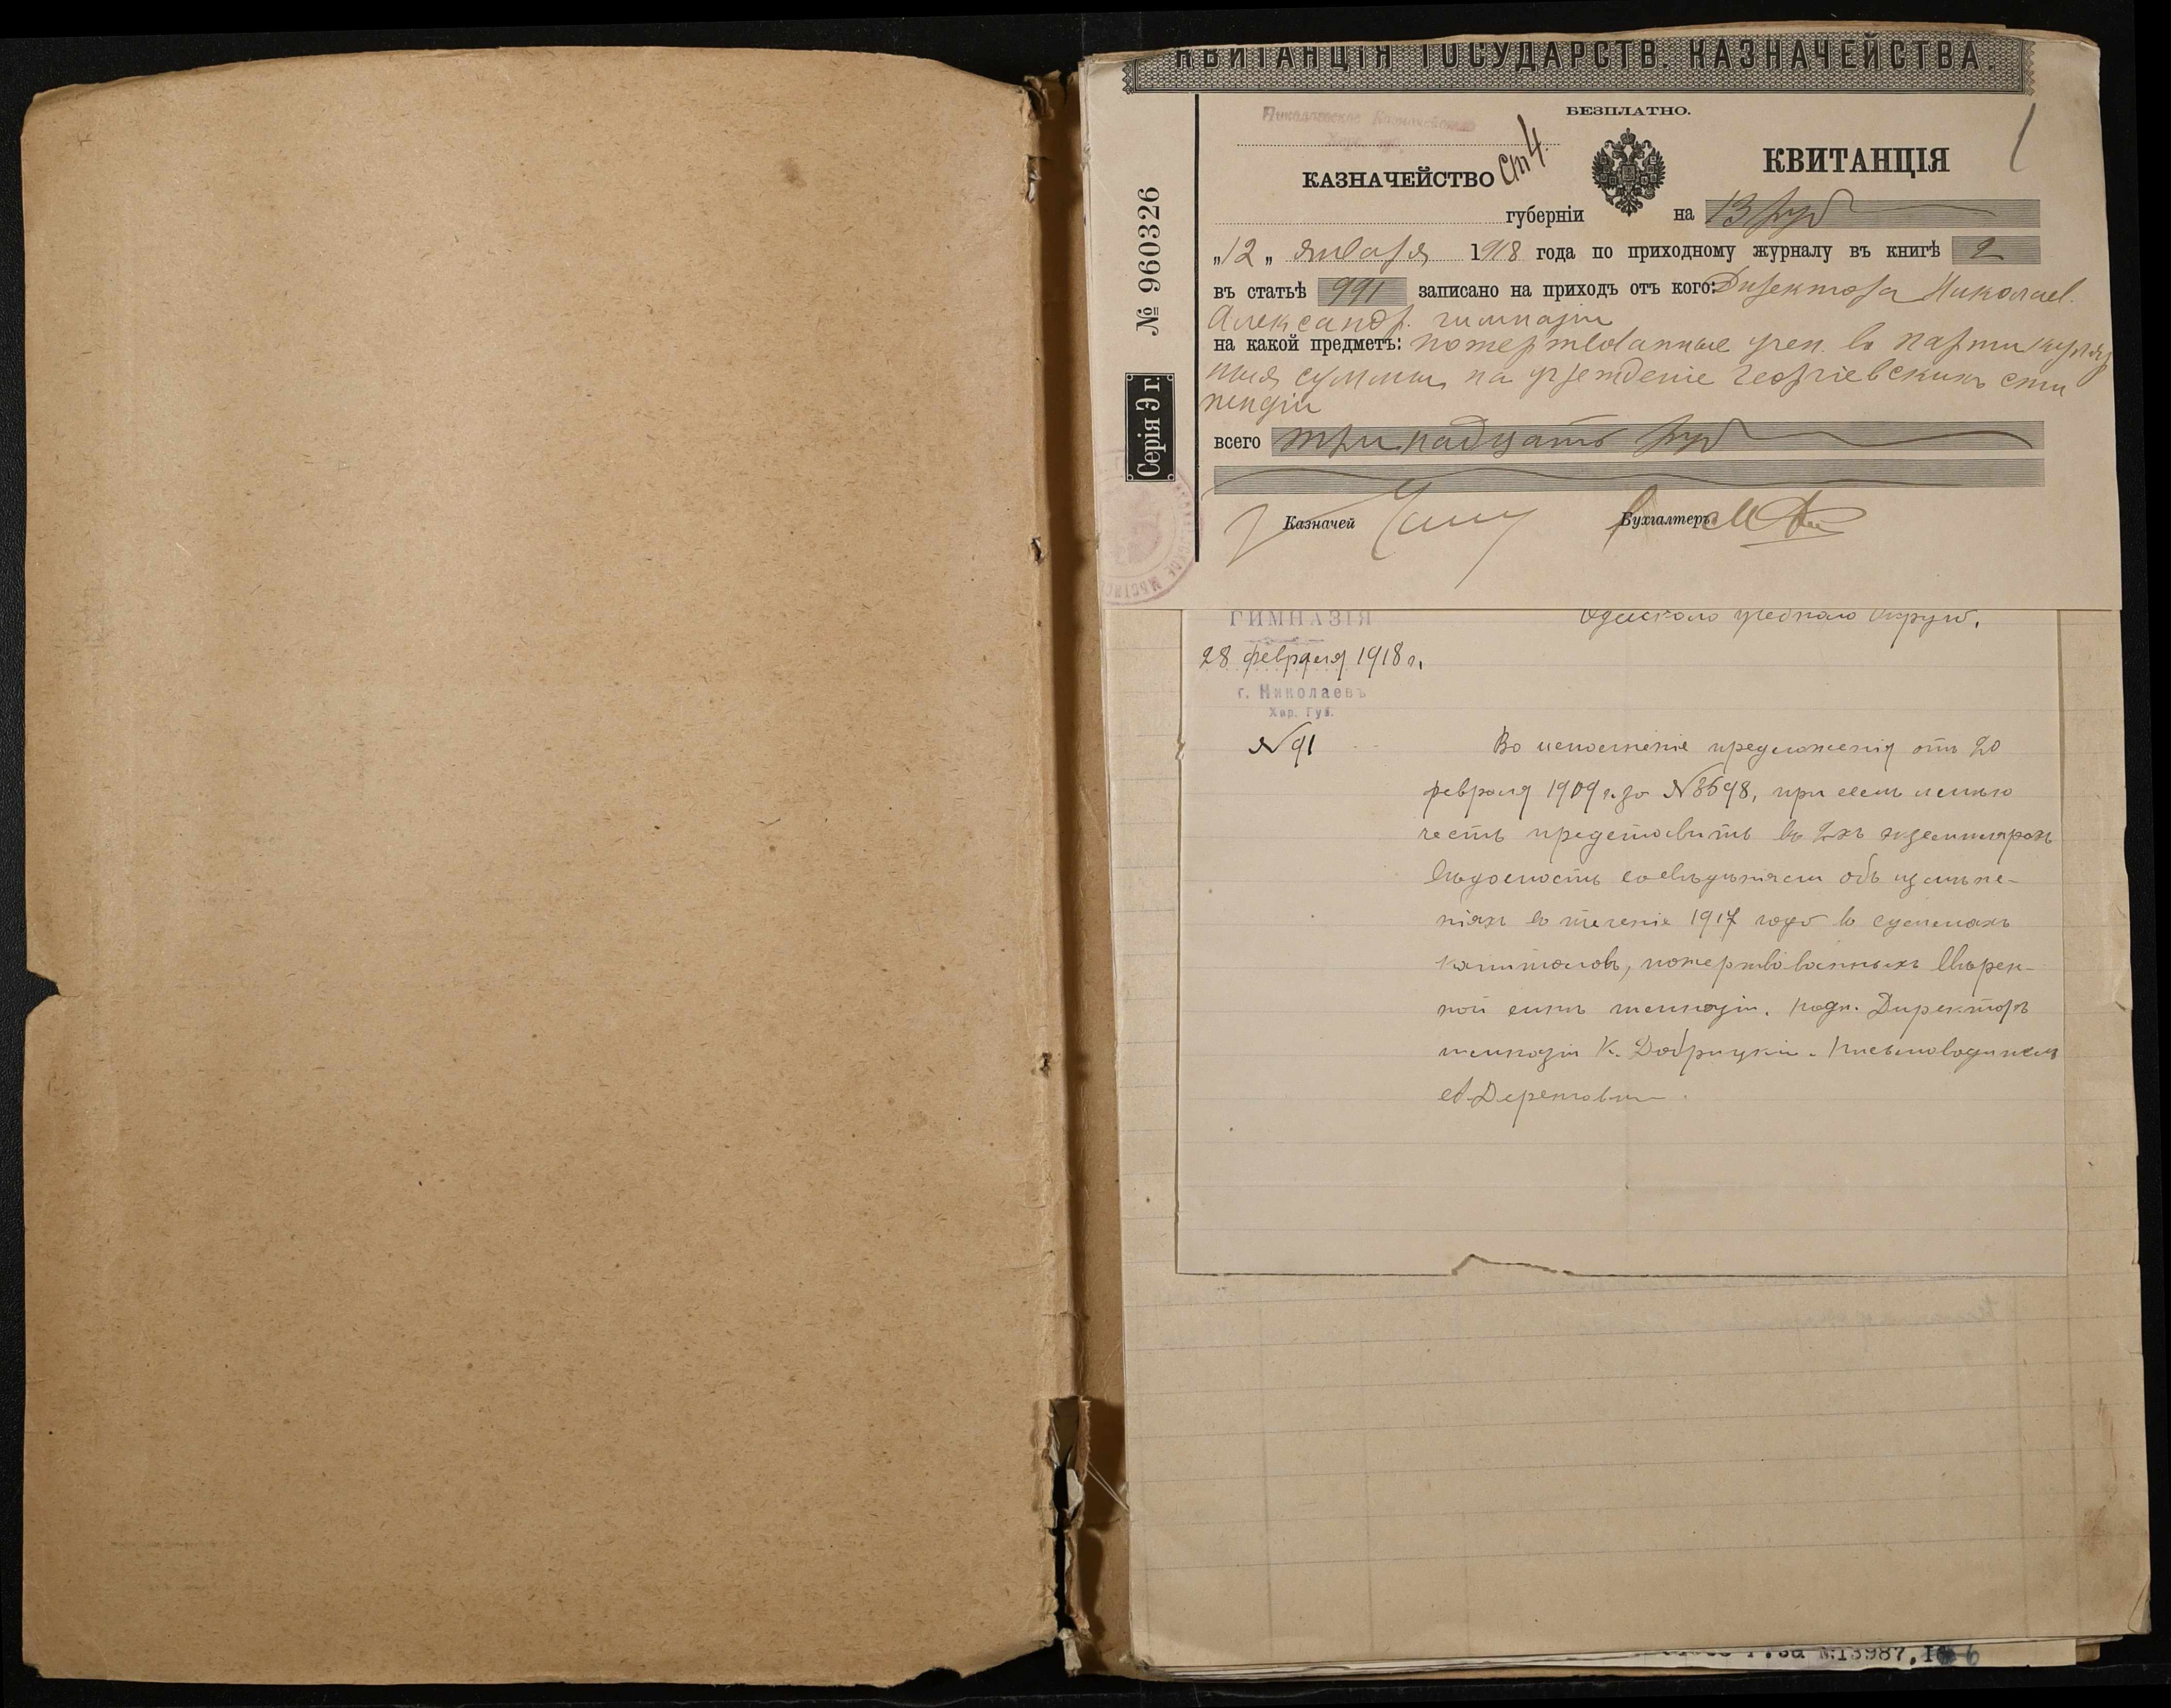 КВИТАНЦІЯ ГОСУДАРСТВ. КАЗНАЧЕЙСТВА.
БЕЗПЛАТНО.
1
Николаевское Казначейство
Хер. губ.
Ст 4.
КАЗНАЧЕЙСТВО
КВИТАНЦІЯ
губерніи
на 13 руб
„12„ января 1918 года по приходному журналу въ книгѣ 2
въ статьѣ 991 записано на приходъ отъ кого: Директора Николаев.
Александр. гимназіи
на какой предметъ: пожертвованные учен. въ партикуляр
ныя суммы на учрежденіе Георгіевскихъ сти
пендій
всего тринадцать руб
Казначей
Бухгалтеръ
№ 960326
Серія Э г.
ГИМНАЗІЯ
Одесскаго учебнаго Округа.
28 февраля 1918 г.
г. Николаевъ
Хер. Губ.
№ 91
Во исполненіе предложенія отъ 20
февраля 1909 г. за № 3598, при семъ имѣю
честь представить въ 2хъ экземплярахъ
вѣдомость со свѣдѣніями объ измѣне-
ніяхъ въ теченіе 1917 года въ суммахъ
капиталовъ, пожертвованныхъ ввѣрен-
ной мнѣ гимназіи. подп. Директоръ
гимназіи К. Добрицкій. Письмоводитель
№13987. 6